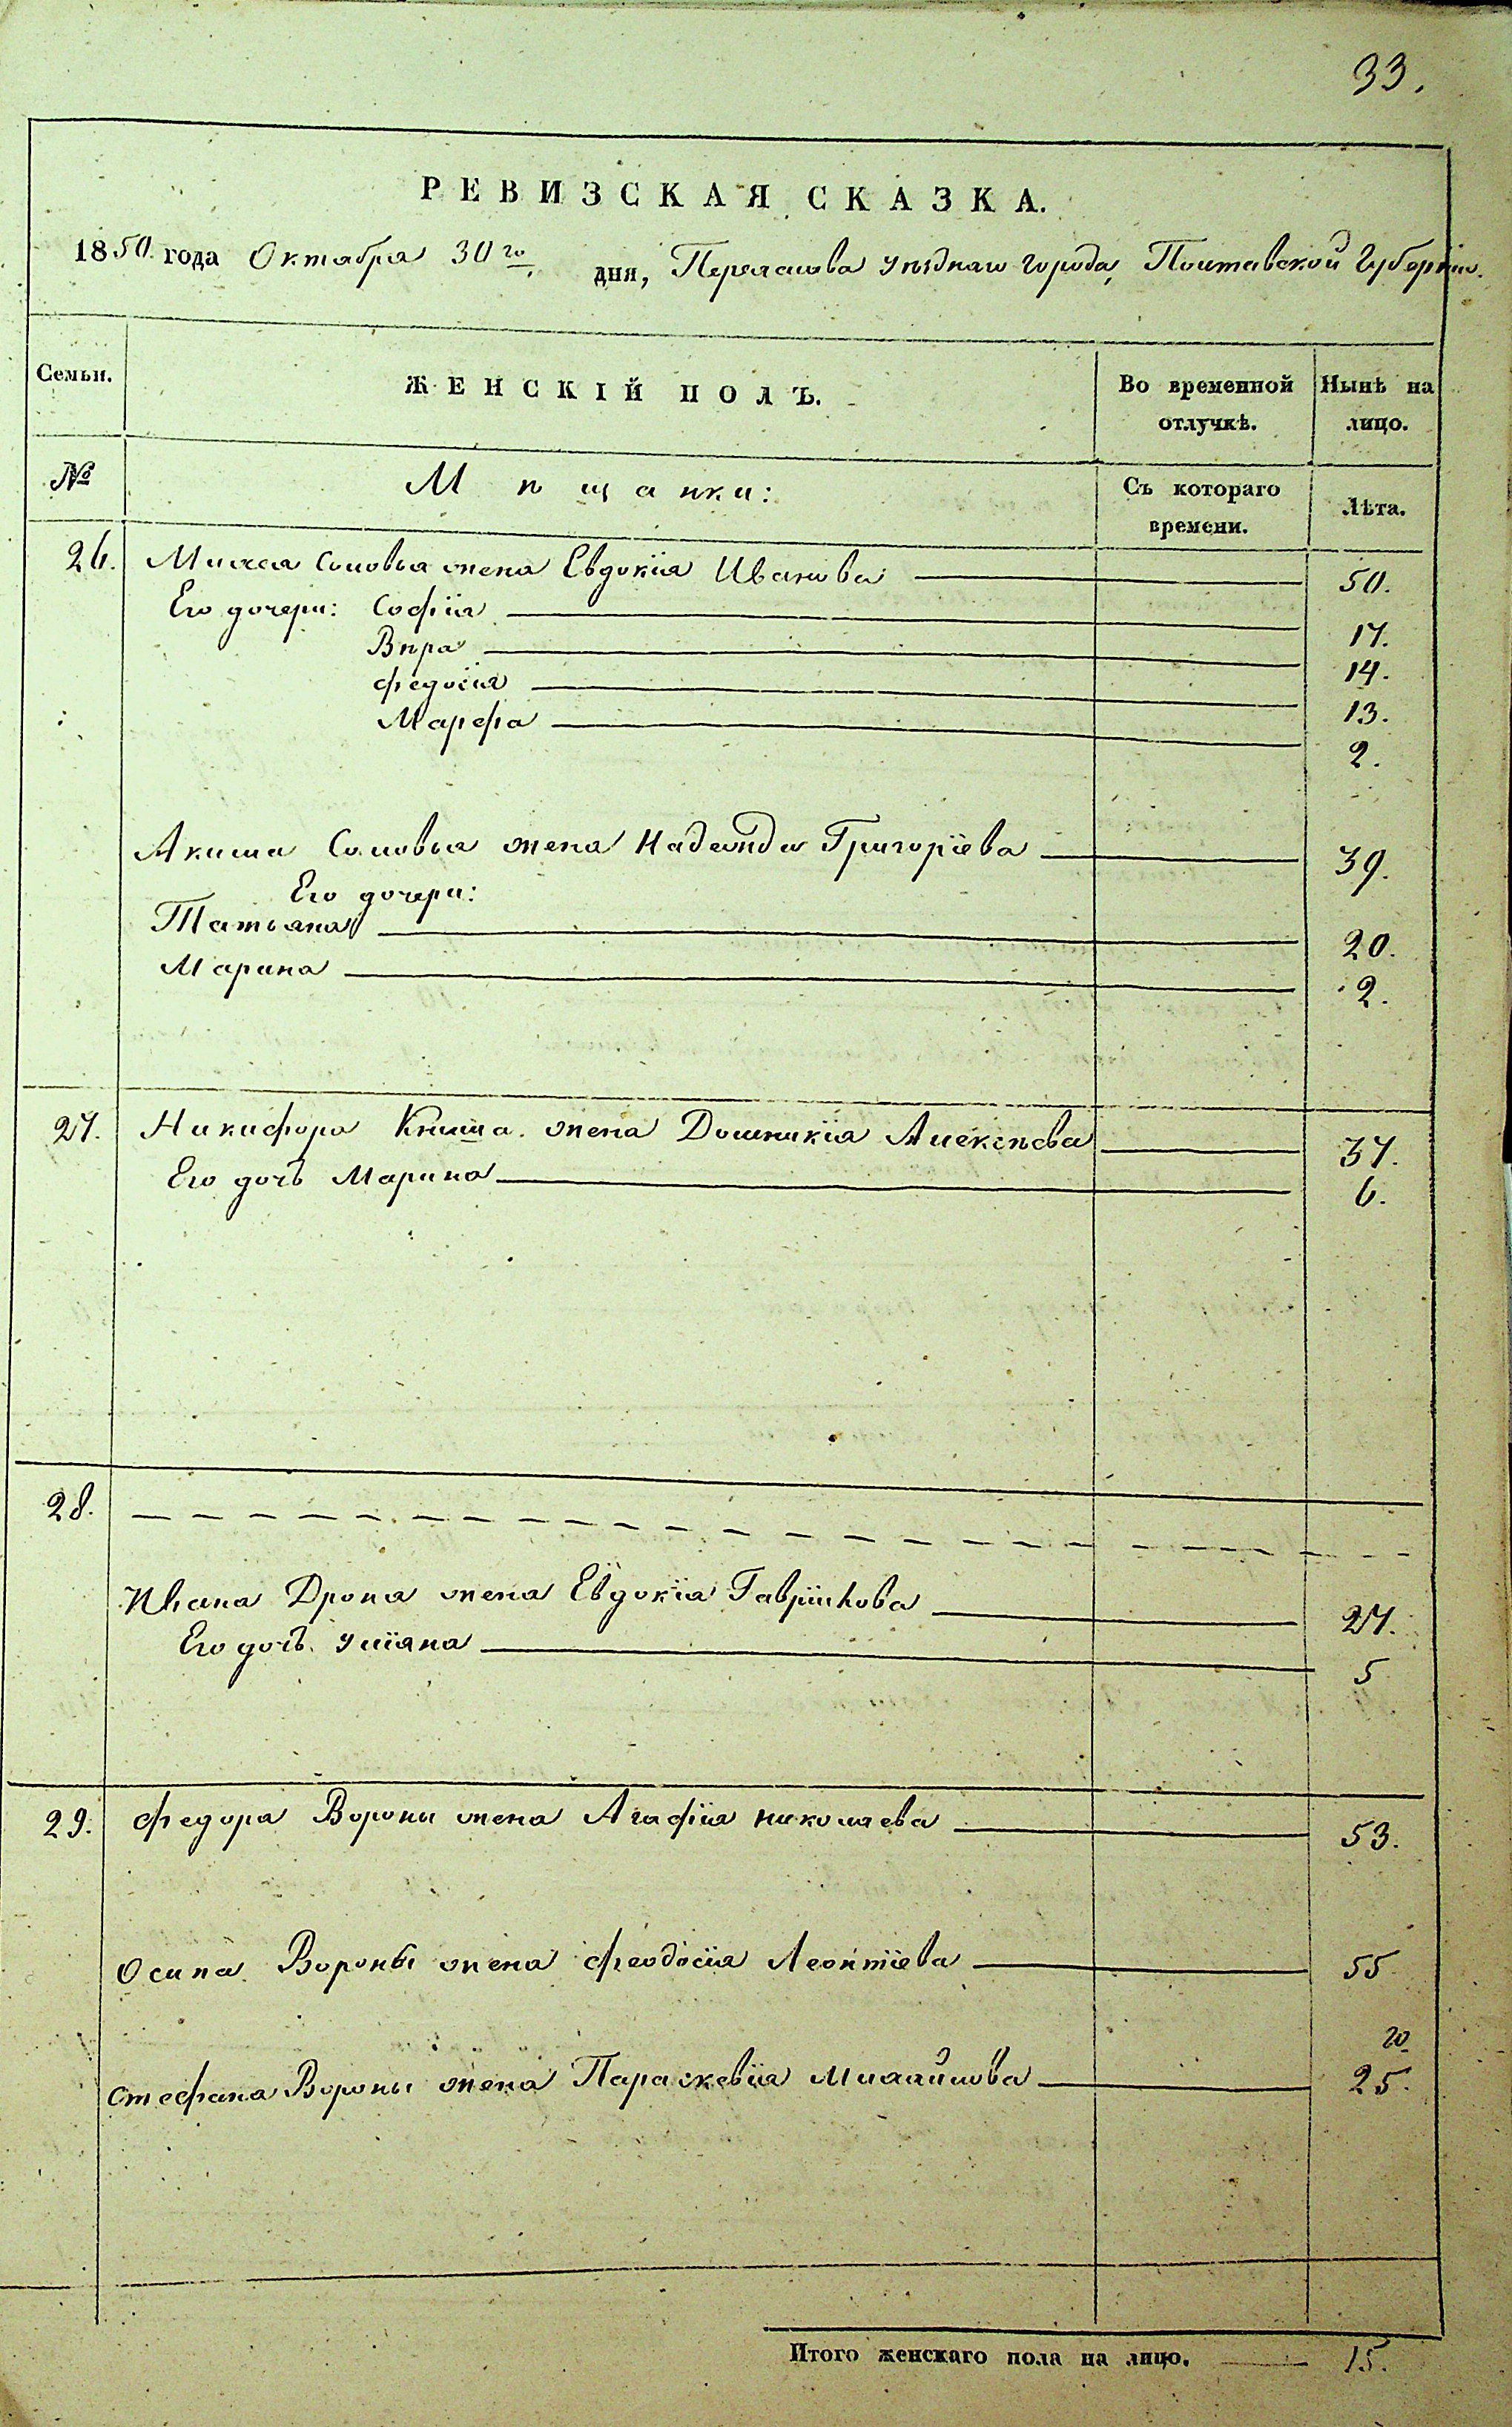 33.
РЕВИЗСКАЯ СКАЗКА.
1850 года Октября 30го дня, Переяслова уѣзднаго города, Полтавской Губерніи.
Семьи. ЖЕНСКІЙ ПОЛЪ. Во временной отлучкѣ. Нынѣ на лицо.
№ Мѣщанки: Съ котораго времени. Лѣта.
26. Соловья жена Евдокія Иванова 50.
Его дочери: Софія 17.
Вѣра 14.
Федосія 13.
Марфа 2.
Акима Соловья жена Надежда Григоріева 39.
Его дочери:
Татьяна 20.
Марина 2.
27. Никифора Книша жена Домникія Алексѣева 37.
Его дочь Марина 6.
28.
Ивана Дрона жена Евдокія Гавріилова 27.
Его дочь Уліяна 5
29. Федора Вороны жена Агафія Николаева 53.
Осипа Вороны жена Феодосія Леонтіева 55
Стефана Вороны жена Параскевія Михайлова 25.
Итого женскаго пола на лицо. 15.